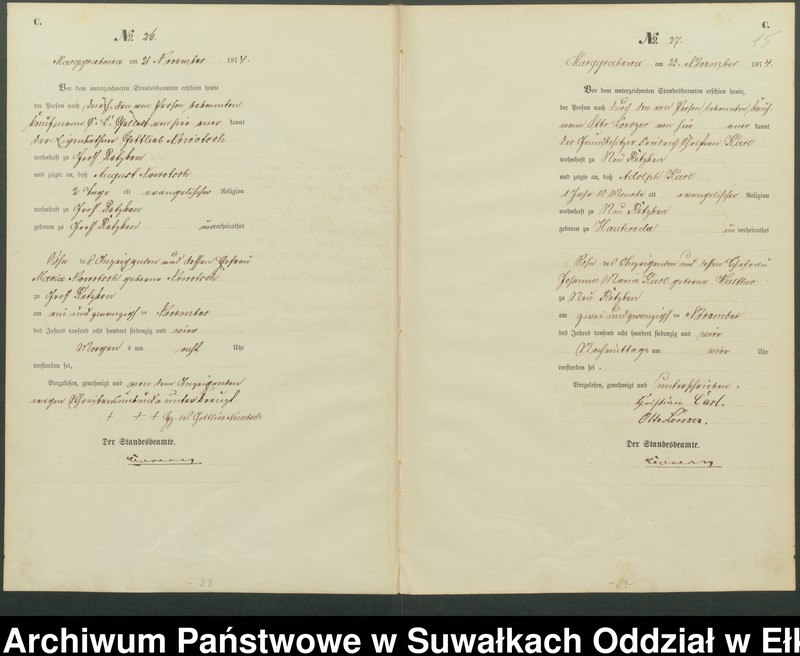 C.
№ 26.
Marggrabowa am 21 November 1874.
Vor dem unterzeichneten Standesbeamten erschien heute
der Person nach durch den von Person bekannten
Kaufmann kannt
der Eigenkäthner Gottlieb Nowotsch
wohnhaft zu Groß Retzken
und zeigte an, daß August Nowotsch
2 Tage alt evangelischer Religion
wohnhaft zu Groß Retzken
geboren zu Groß Retzken unverheirathet
Sohn des Anzeigenden und dessen Ehefrau
Maria Nowotsch geborene Nowotsch
zu Groß Retzken
am ein und zwanzigsten November
des Jahres tausend acht hundert siebenzig und vier
Morgens um acht Uhr
verstorben sei,
Vorgelesen, genehmigt und von dem Anzeigenden
wegen Schreibensunkunde unterkreuzt
+ + + Hz. des Gottlieb Nowotsch
Der Standesbeamte.
- 28 -
C.
15
№ 27.
Marggrabowa am 23. November 1874.
Vor dem unterzeichneten Standesbeamten erschien heute,
der Person nach durch den von Person bekannten Kauf-
mann Otto Loerzer von hier kannt
der Grundbesitzer Christian Karl
wohnhaft zu Neu Retzken
und zeigte an, daß Adolph Karl
1 Jahr 10 Monate alt evangelischer Religion
wohnhaft zu Neu Retzken
geboren zu unverheirathet
Sohn des Anzeigenden und dessen Ehefrau
Johanna Maria Karl geborene
zu Neu Retzken
am zwei und zwanzigsten November
des Jahres tausend acht hundert siebenzig und vier
Nachmittags um vier Uhr
verstorben sei.
Vorgelesen, genehmigt und unterschrieben.
Christian Carl.
Otto Loerzer.
Der Standesbeamte.
- 29 -
Archiwum Państwowe w Suwałkach Oddział w Ełk